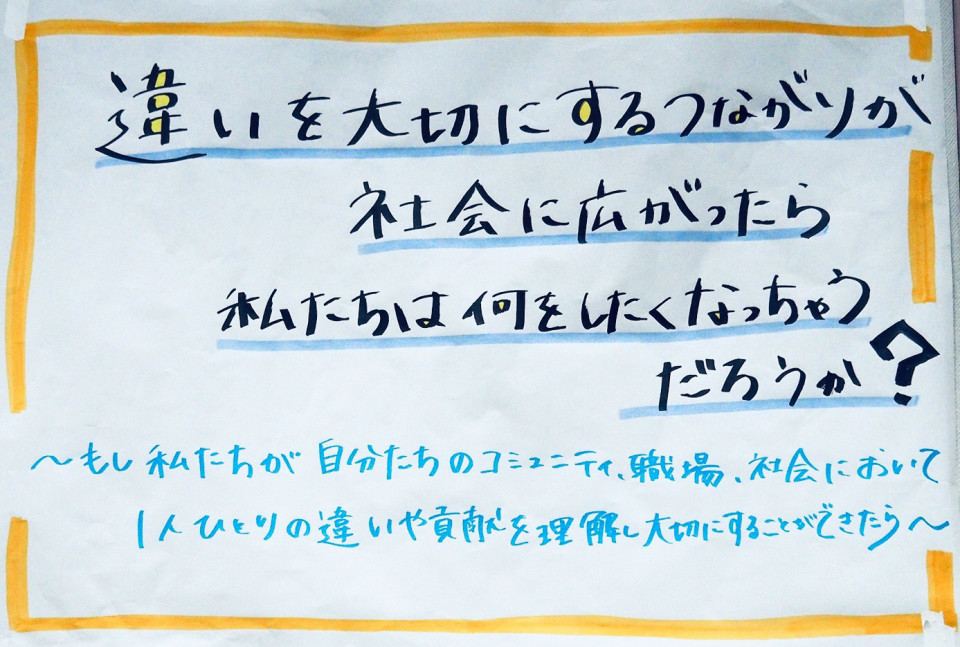 違いを大切にするつながりが
社会に広がったら
私たちは何をしたくなっちゃう
だろうか?
〜もし私たちが自分たちのコミュニティ、職場、社会において
1人ひとりの違いや貢献を理解し大切にすることができたら〜